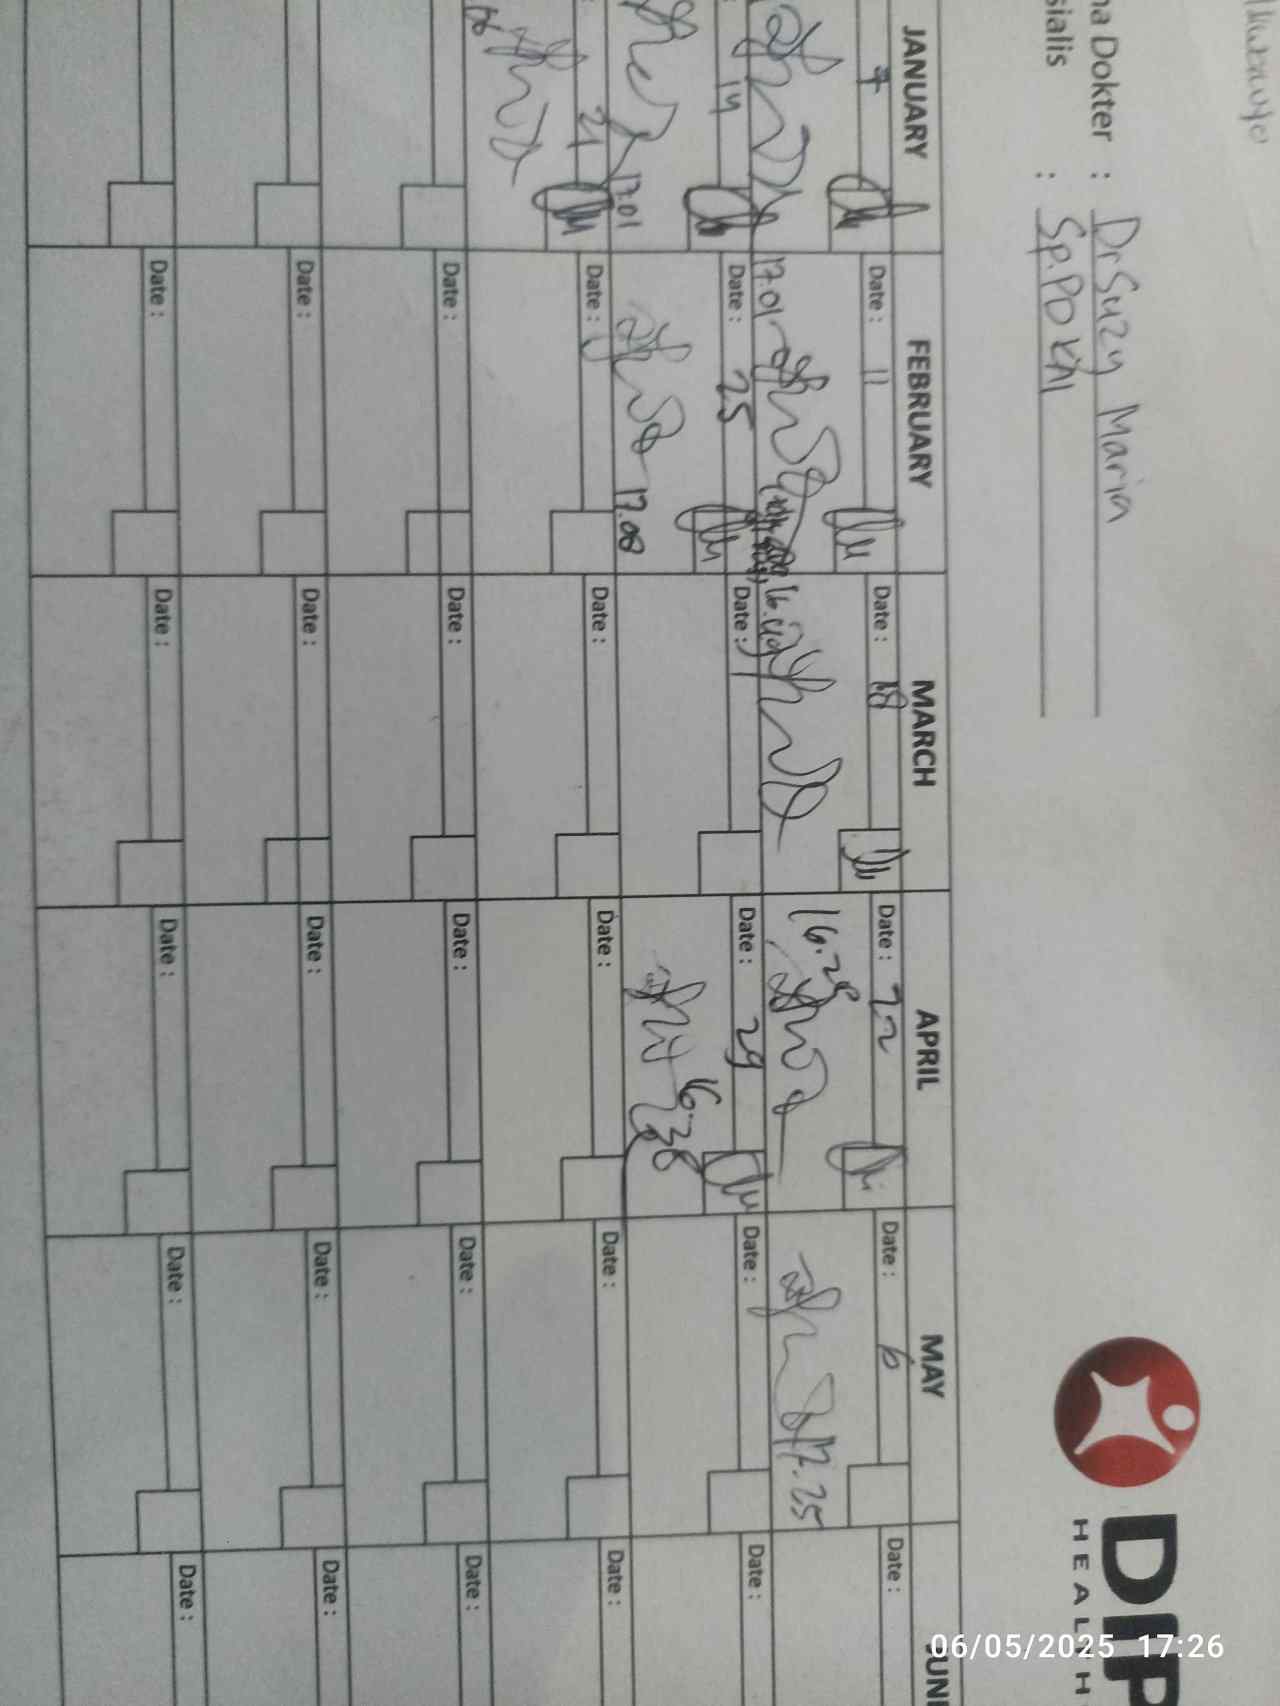 na Dokter : Dr Suzy Maria
sialis : Sp.PD KAI
DIP
HEALTH
JANUARY FEBRUARY MARCH APRIL MAY JUNE
7 Date : 11 Date : 18 Date : 22 Date : 6 Date :
17.01 16.49 16.28 17.25
14 Date : 25 Date : Date : 29 Date : Date :
17.01 17.08 16.38
21 Date : Date : Date : Date : Date :
Date : Date : Date : Date : Date :
Date : Date : Date : Date : Date :
Date : Date : Date : Date : Date :
06/05/2025 17:26